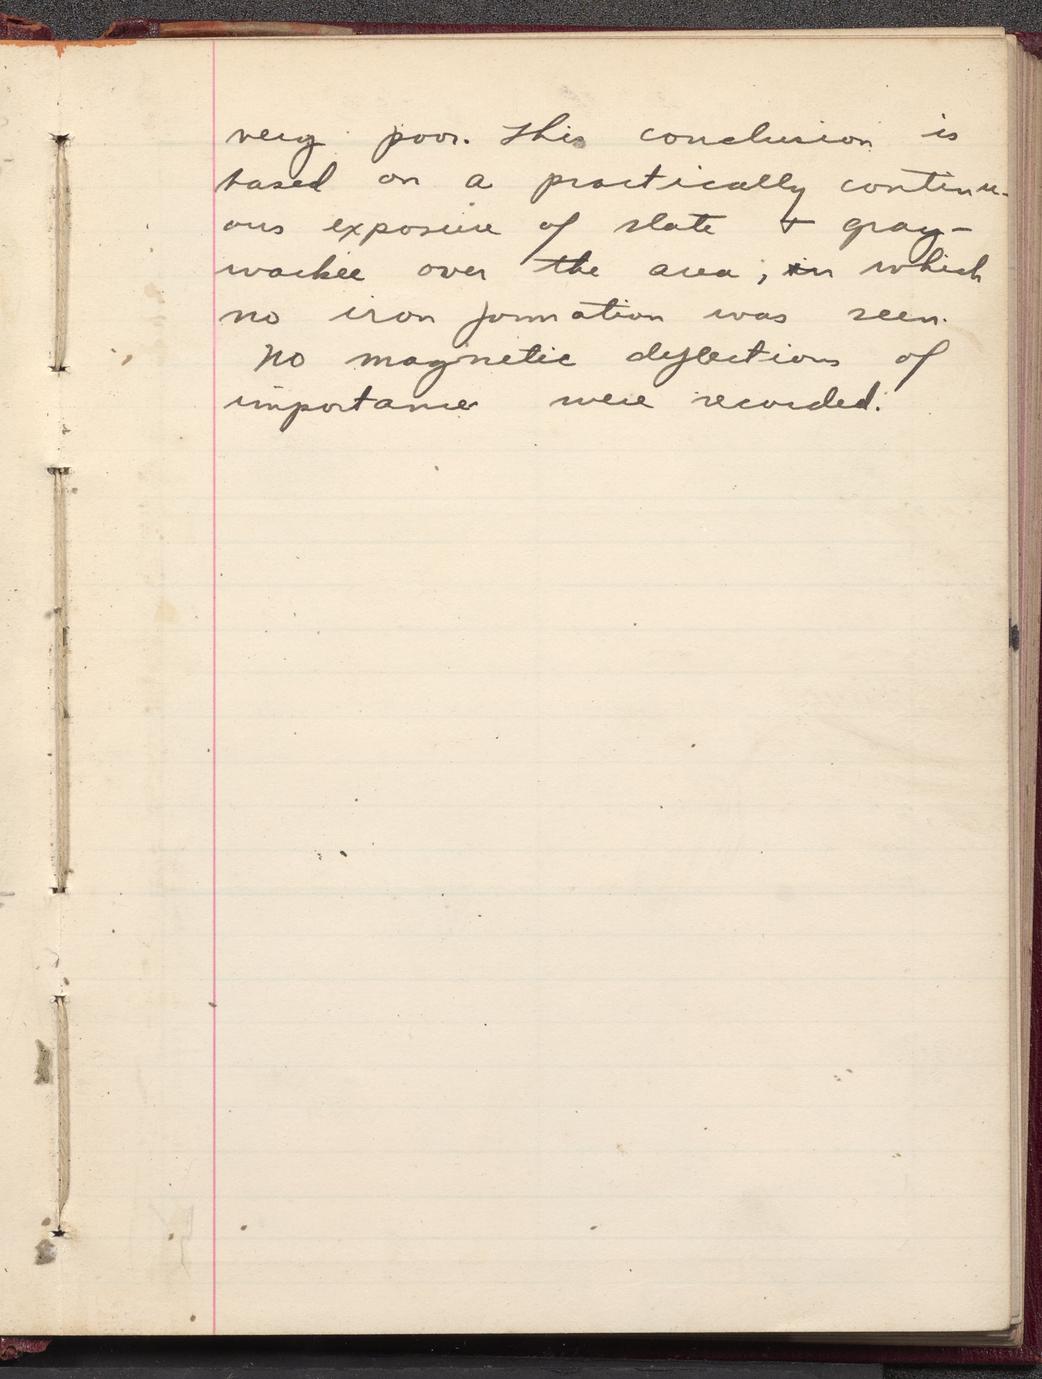 very poor. This conclusion is
based on a practically continu-
ous exposure of slate + gray-
wackee over the area; in which
no iron formation was seen.
No magnetic deflections of
importance were recorded.